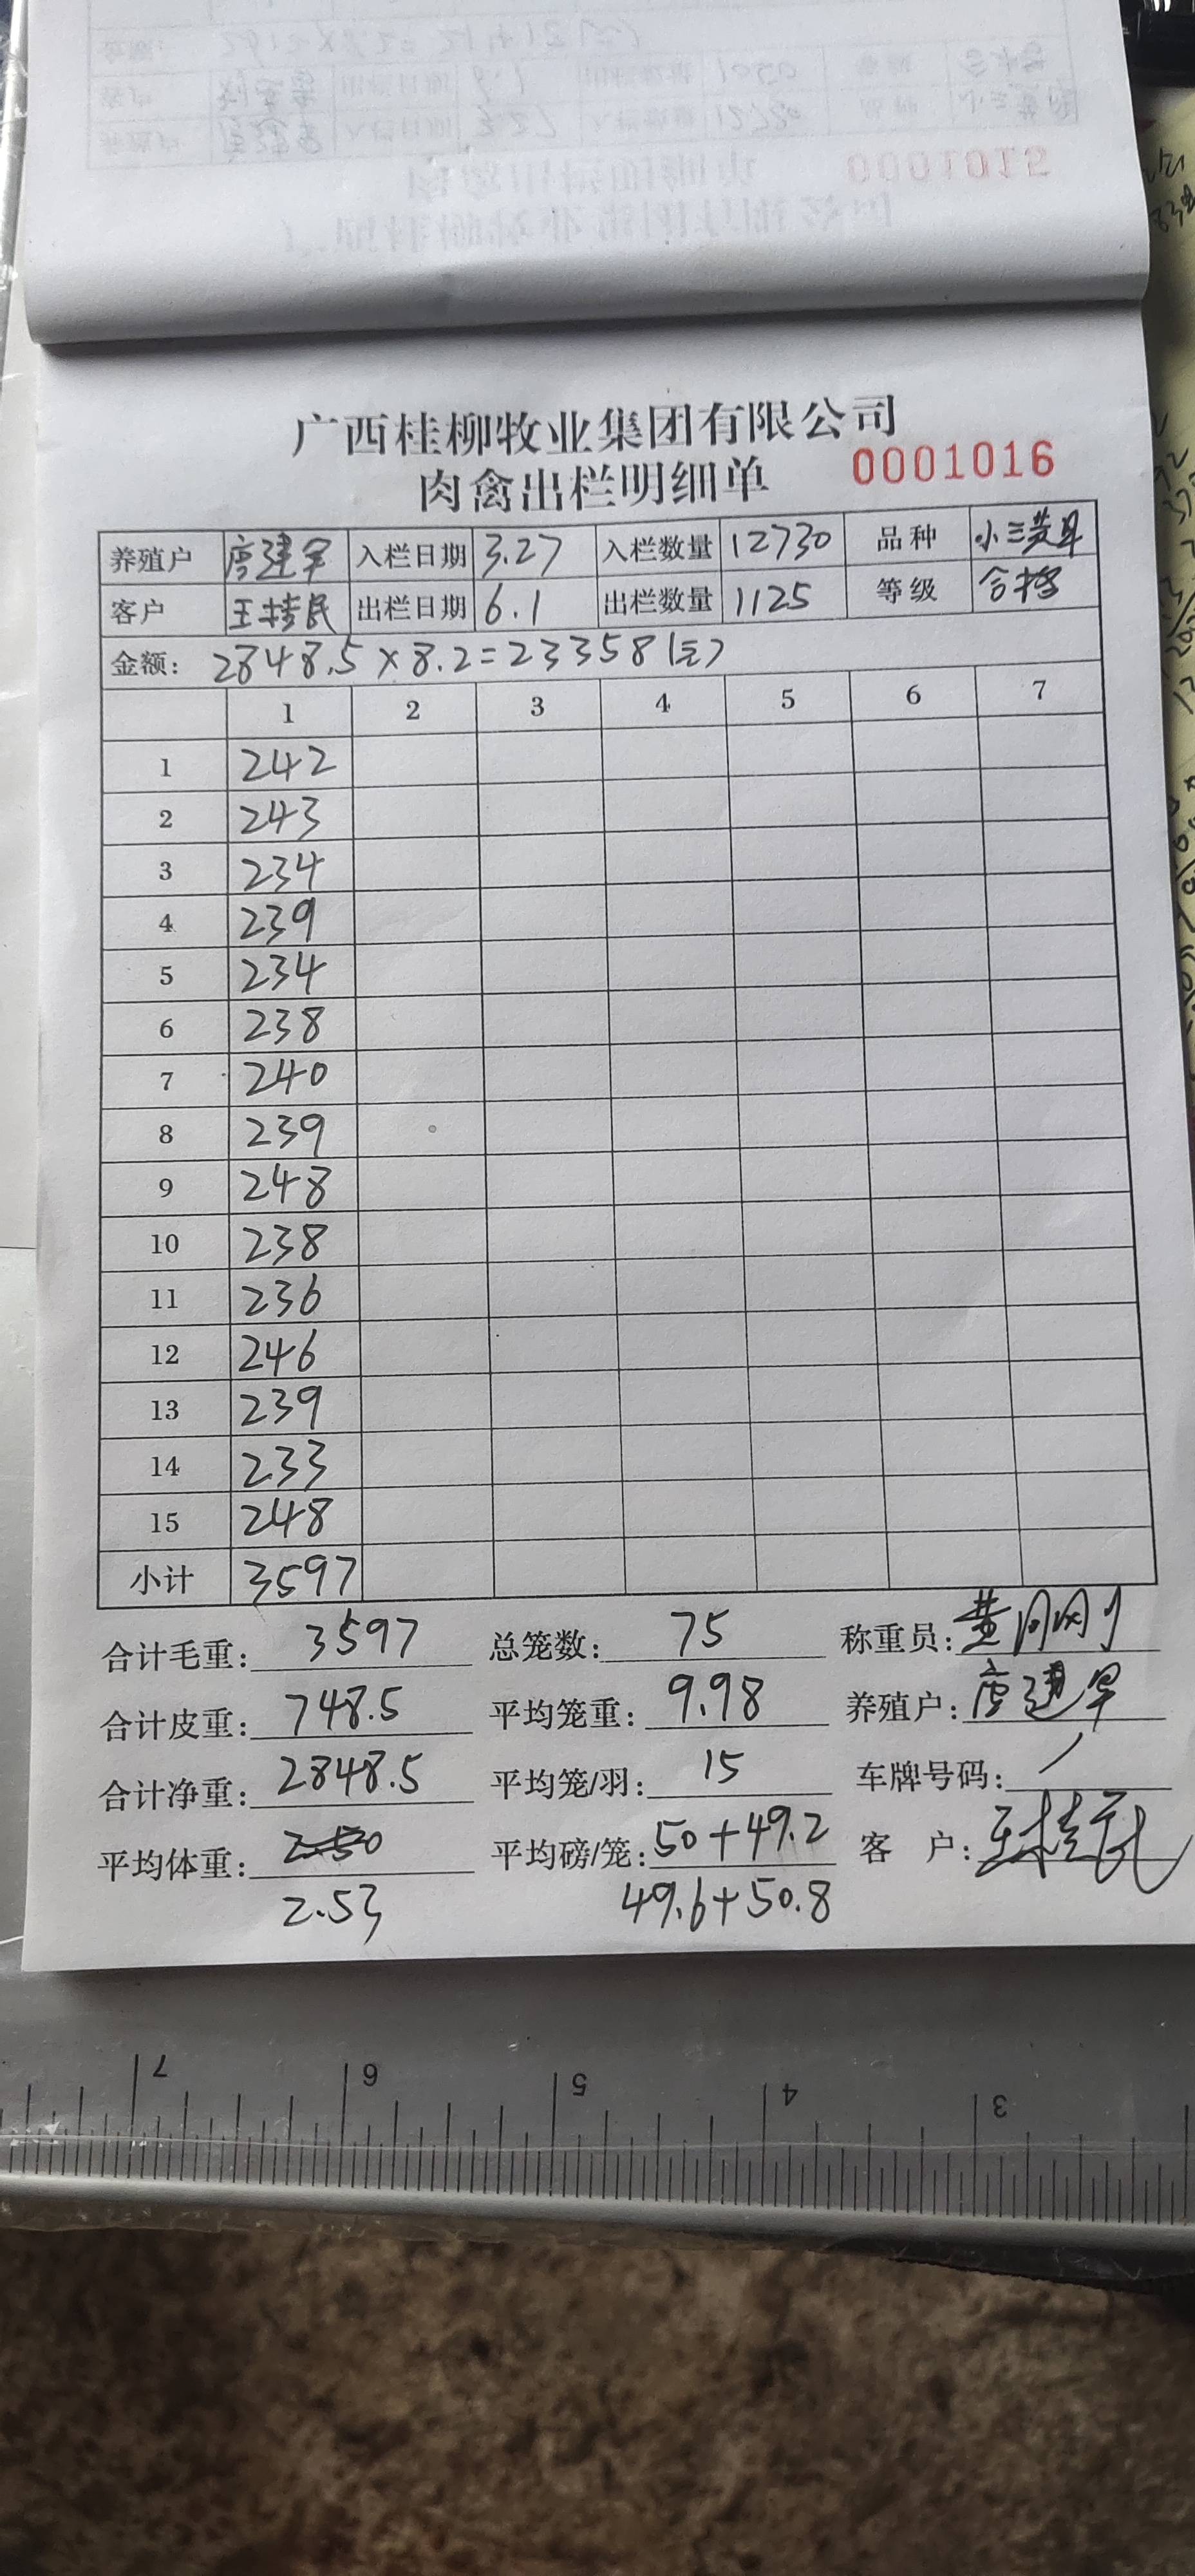 0001015
广西桂柳牧业集团有限公司
肉禽出栏明细单 0001016
养殖户 廖建军 入栏日期 3.27 入栏数量 12730 品种 小三黄早
客户 王桂民 出栏日期 6.1 出栏数量 1125 等级 合格
金额: 2848.5×8.2=23358(元)
1 2 3 4 5 6 7
1 242
2 243
3 234
4 239
5 234
6 238
7 240
8 239
9 248
10 238
11 236
12 246
13 239
14 233
15 248
小计 3597
合计毛重: 3597 总笼数: 75 称重员: 黄刚刚
合计皮重: 748.5 平均笼重: 9.98 养殖户:
合计净重: 2848.5 平均笼/羽: 15 车牌号码: /
平均体重: 2.50 平均磅/笼: 50+49.2 客 户: 王桂民
2.53 49.6+50.8
7 6 5 4 3